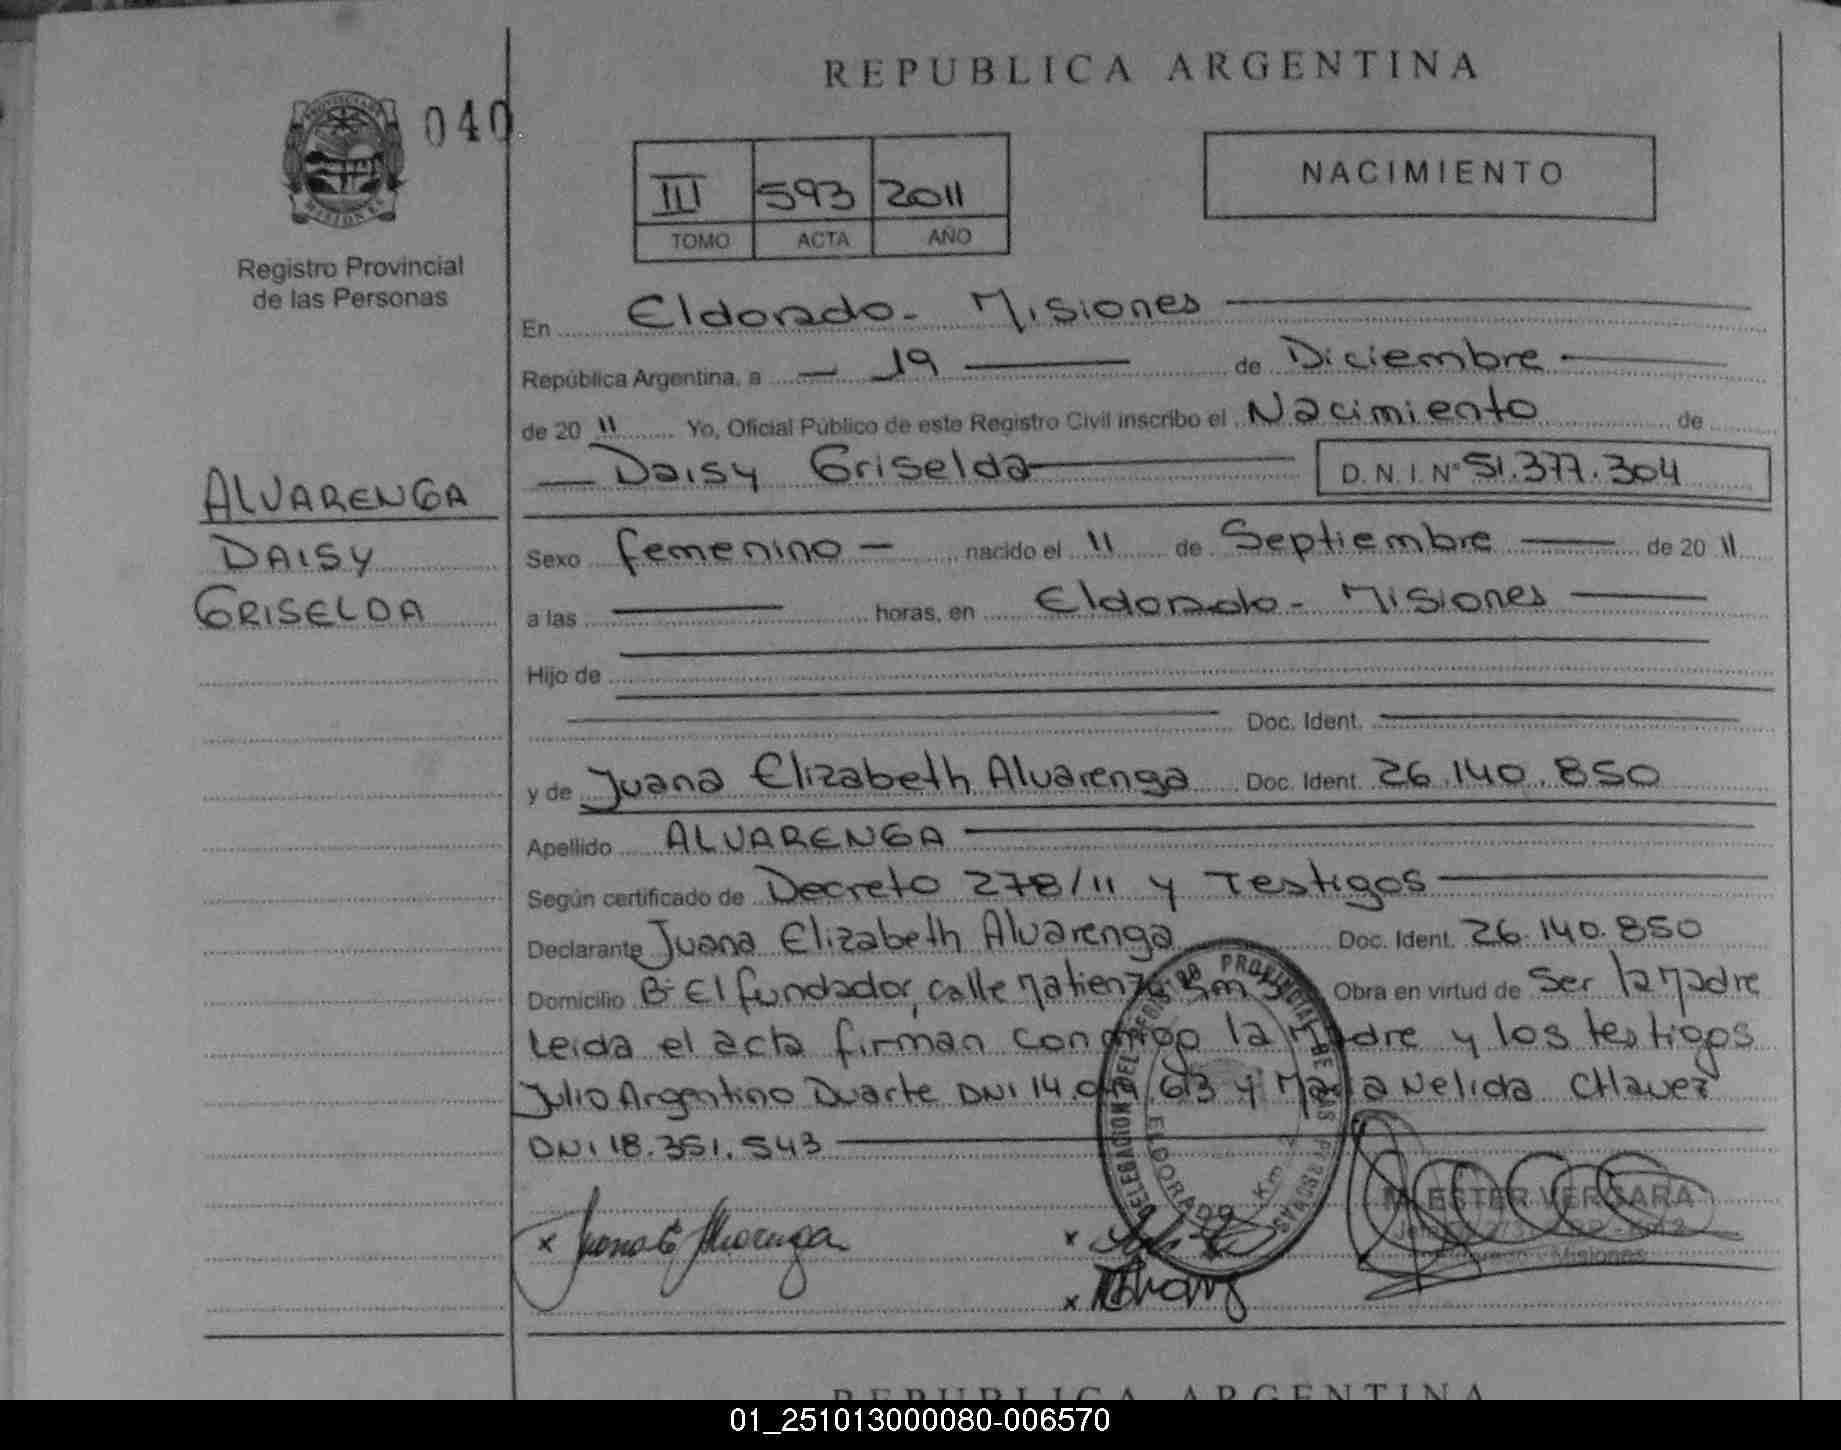 REPUBLICA ARGENTINA
040
NACIMIENTO
III 593 2011
TOMO ACTA AÑO
Registro Provincial
de las Personas
En Eldorado - Misiones
República Argentina, a - 19 de Diciembre
de 20 11 Yo, Oficial Público de este Registro Civil inscribo el Nacimiento de
Daisy Griselda D.N.I. Nº 51.377.304
ALVARENGA
DAISY
GRISELDA
Sexo femenino - nacido el 11 de Septiembre de 20 11
a las horas, en Eldorado - Misiones
Hijo de
Doc. Ident.
y de Juana Elizabeth Alvarenga Doc. Ident. 26.140.850
Apellido ALVARENGA
Según certificado de Decreto 278/11 y Testigos
Declarante Juana Elizabeth Alvarenga Doc. Ident. 26.140.850
Domicilio Bº El fundador, calle Matienzo Obra en virtud de Ser la Madre
Leida el acta firman conmigo la Madre y los testigos
Julio Argentino Duarte DNI 14. 613 y Maria Nelida Chavez
DNI 18.351.543
DELEGACION DEL REGISTRO PROVINCIAL DE LAS PERSONAS
ELDORADO Km
M. ESTER VERGARA
Misiones
REPUBLICA ARGENTINA
01_251013000080-006570